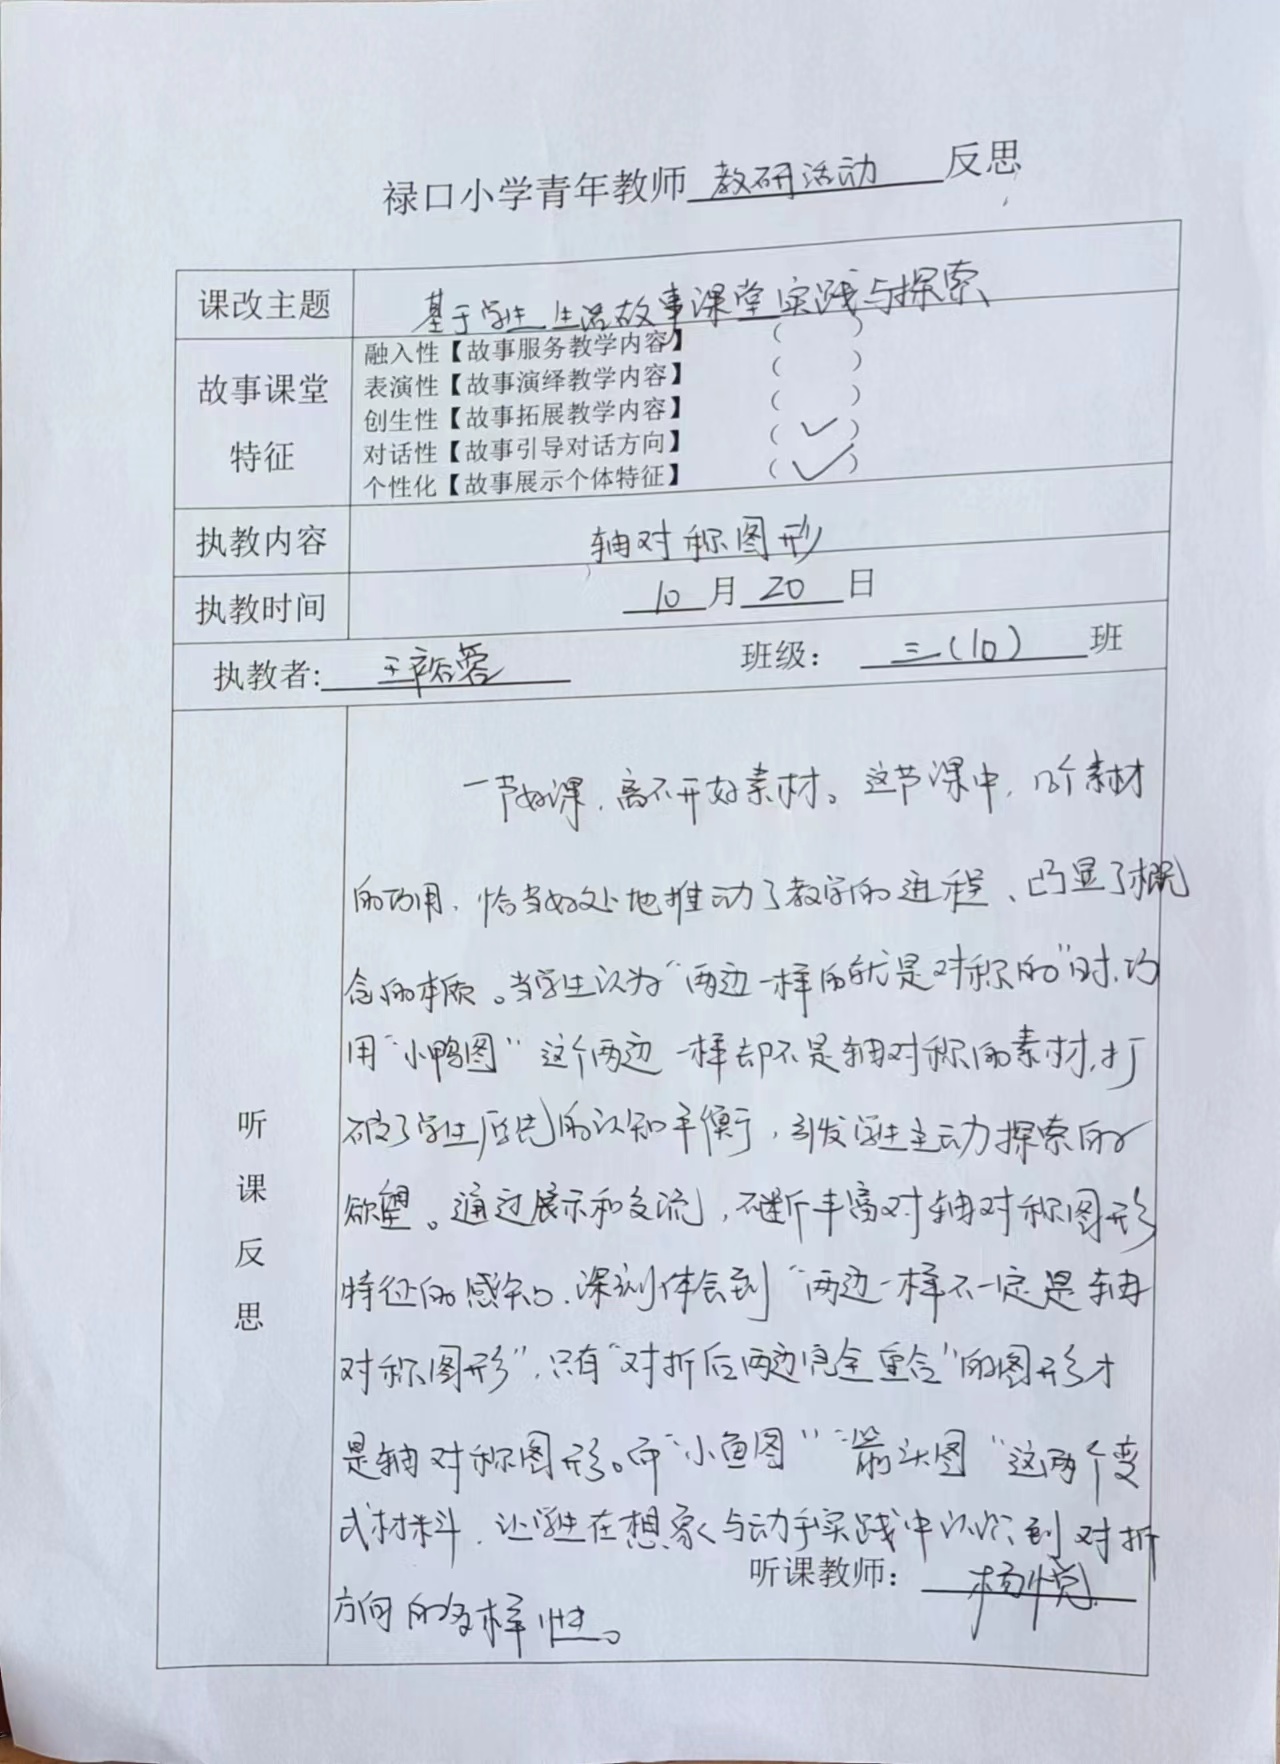 禄口小学青年教师 教研活动 反思
课改主题 基于学生生活故事课堂实践与探索
故事课堂
特征
融入性【故事服务教学内容】 ( )
表演性【故事演绎教学内容】 ( )
创生性【故事拓展教学内容】 ( )
对话性【故事引导对话方向】 (✓)
个性化【故事展示个体特征】 (✓)
执教内容 轴对称图形
执教时间 10月20日
执教者: 王蓉 班级: 三(10) 班
听课反思
一节好课,离不开好素材。这节课中,几个素材
的巧用,恰当好处地推动了教学的进程、凸显了概
念的本质。当学生认为“两边一样的就是对称的”时,巧
用“小鸭图”这个两边一样却不是轴对称的素材,打
破了学生原先的认知平衡,引发学生主动探索的
欲望。通过展示和交流,不断丰富对轴对称图形
特征的感知,深刻体会到“两边一样不一定是轴
对称图形”,只有“对折后两边完全重合”的图形才
是轴对称图形。而“小鱼图”“箭头图”这两个变
式材料,让学生在想象与动手实践中认识到对折
方向的多样性。
听课教师: 杨悦